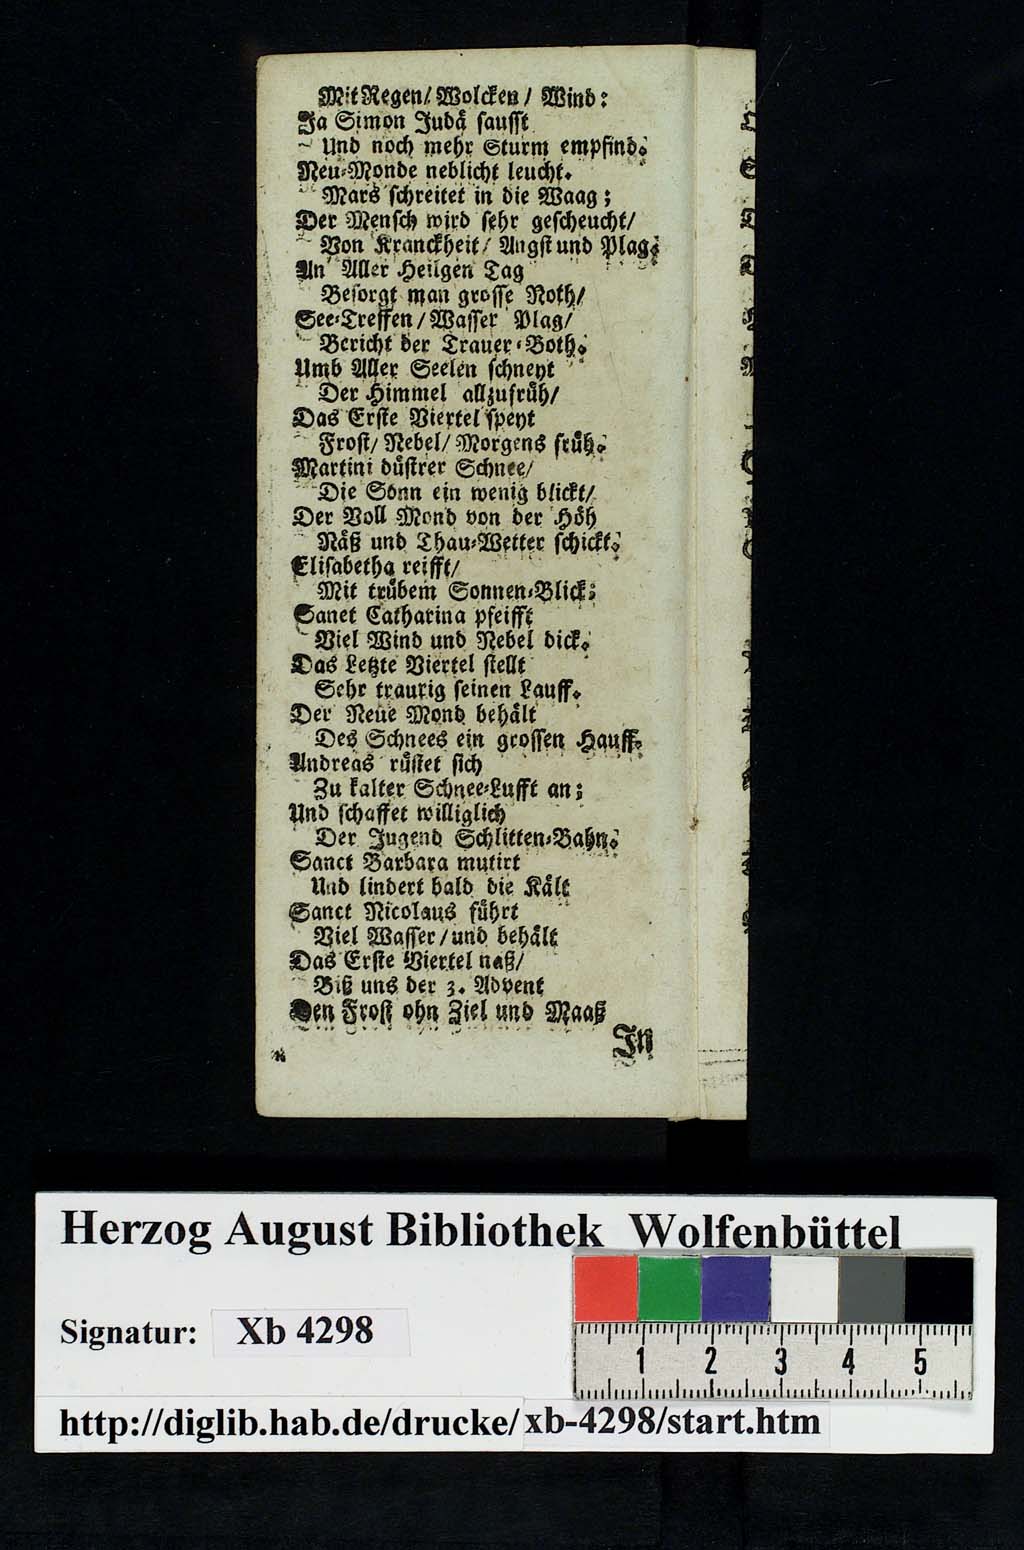 Mit Regen/ Wolcken/ Wind:
Ja Simon Judä sausst
Und noch mehr Sturm empfind.
Neu-Monde neblicht leucht.
Mars schreitet in die Waag;
Der Mensch wird sehr gescheucht/
Von Kranckheit/ Angst und Plag.
An Aller Heilgen Tag
Besorgt man grosse Noth/
See-Treffen/ Wasser Plag/
Bericht der Trauer-Both.
Umb Aller Seelen schneyt
Der Himmel allzufrüh/
Das Erste Viertel speyt
Frost/ Nebel/ Morgens früh.
Martini düstrer Schnee/
Die Sonn ein wenig blickt/
Der Voll Mond von der Höh
Näß und Thau-Wetter schickt.
Elisabetha reifft/
Mit trübem Sonnen-Blick;
Sanct Catharina pfeifft
Viel Wind und Nebel dick.
Das Letzte Viertel stellt
Sehr traurig seinen Lauff.
Der Neue Mond behält
Des Schnees ein grossen Hauff.
Andreas rüstet sich
Zu kalter Schnee-Lufft an;
Und schaffet williglich
Der Jugend Schlitten-Bahn.
Sanct Barbara mutirt
Und lindert bald die Kält
Sanct Nicolaus führt
Viel Wasser/ und behält
Das Erste Viertel naß/
Biß uns der 3. Advent
Den Frost ohn Ziel und Maaß
In
Herzog August Bibliothek Wolfenbüttel
Signatur: Xb 4298
1 2 3 4 5
http://diglib.hab.de/drucke/xb-4298/start.htm